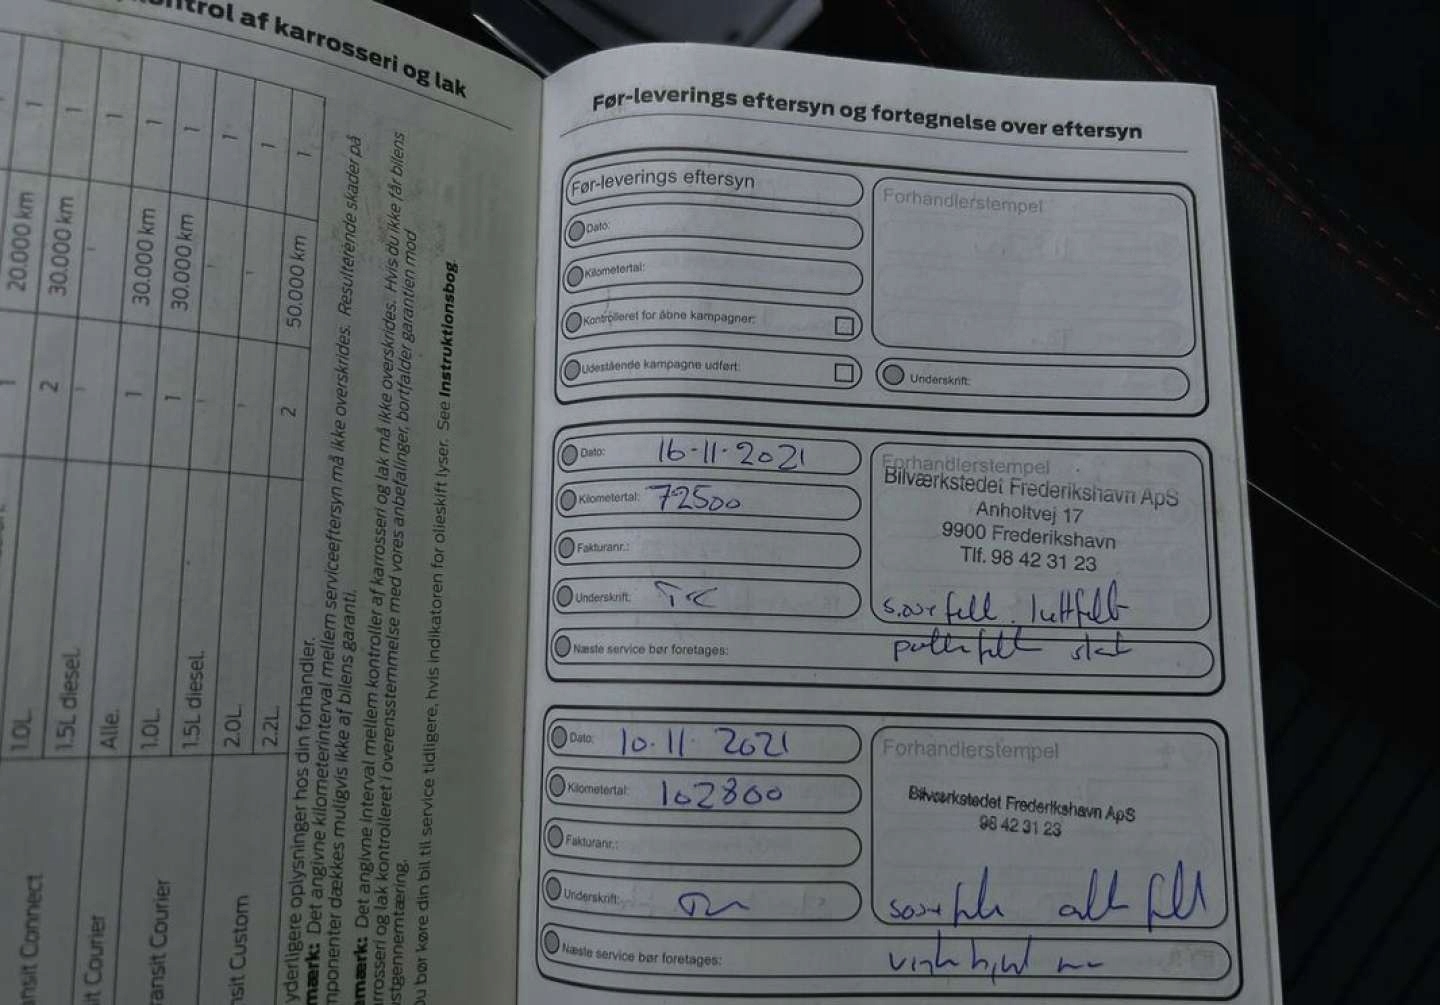 kontrol af karrosseri og lak
20.000 km
30.000 km
30.000 km
30.000 km
50.000 km
1.0L.
1.5L diesel.
Alle.
1.0L.
1.5L diesel.
2.0L.
2.2L.
Transit Connect
Transit Courier
Transit Custom
yderligere oplysninger hos din forhandler.
mærk: Det angivne kilometerinterval mellem serviceeftersyn må ikke overskrides. Resulterende skader på
mponenter dækkes muligvis ikke af bilens garanti.
mærk: Det angivne interval mellem kontroller af karrosseri og lak må ikke overskrides. Hvis du ikke får bilens
rrosseri og lak kontrolleret i overensstemmelse med vores anbefalinger, bortfalder garantien mod
stgennemtæring.
u bør køre din bil til service tidligere, hvis indikatoren for olieskift lyser. See Instruktionsbog.
Før-leverings eftersyn og fortegnelse over eftersyn
Før-leverings eftersyn
Forhandlerstempel
Dato:
Kilometertal:
Kontrolleret for åbne kampagner:
Udestående kampagne udført:
Underskrift:
Dato: 16-11-2021
Kilometertal: 72500
Fakturanr.:
Underskrift:
Næste service bør foretages:
Forhandlerstempel
Bilværkstedet Frederikshavn ApS
Anholtvej 17
9900 Frederikshavn
Tlf. 98 42 31 23
Dato: 10.11. 2021
Kilometertal: 102800
Fakturanr.:
Underskrift:
Næste service bør foretages:
Forhandlerstempel
Bilværkstedet Frederikshavn ApS
98 42 31 23